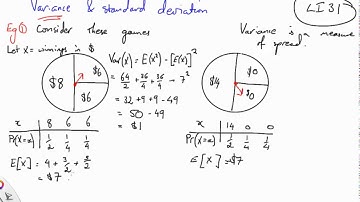 Variance & standard deviation
LI 31
Eg ① Consider these games
Let X = winnings in $
Variance is a measure of spread.
$8
$6
$6
Var(X) = E(X²) - [E(X)]²
= 64/2 + 36/4 + 36/4 - 7²
= 32 + 9 + 9 - 49
= 50 - 49
= $1
$4
$0
$0
x 8 6 6
Pr(X=x) 1/2 1/4 1/4
E[X] = 4 + 3/2 + 3/2
= $7
x 14 0 0
Pr(X=x) 1/2 1/4 1/4
E[X] = $7